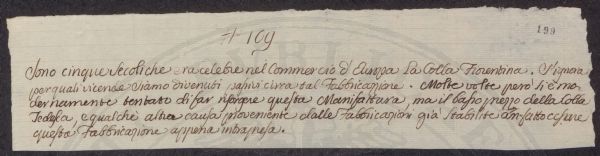 # 169
199
Sono cinque secoli che era celebre nel Commercio d'Europa La Colla Fiorentina. S'ignora
per quali vicende siamo divenuti passivi circa tal Fabbricazione. Molte volte però si è mo-
dernamente tentato di far risorgere questa Manifattura, ma il basso prezzo della Colla
Tedesca, e qualche altra causa proveniente dalle Fabbricazioni già stabilite an fatto cessare
questa Fabbricazione appena intrapresa.